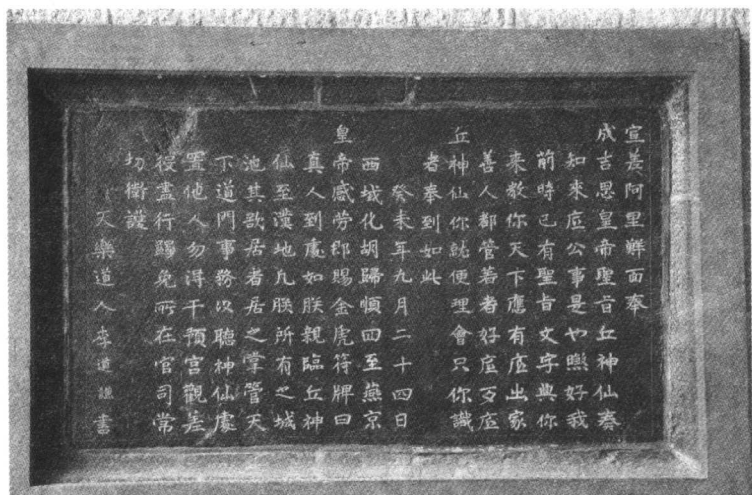 宣差阿里鲜面奉
成吉思皇帝聖旨丘神仙奏
知來底公事是也㬢好我
前時已有聖旨文字與你
來教你天下應有底出家
善人都管着者好底歹底
丘神仙你就便理會只你識
者奉到如此
癸未年九月二十四日
西域化胡歸順回至燕京
皇帝感勞即賜金虎符牌曰
真人到處如朕親臨丘神
仙至漢地凡朕所有之城
池其欲居者居之掌管天
下道門事務以聽神仙處
置他人勿得干預宫觀差
役盡行賜免所在官司常
切衛護
天樂道人李道謙書